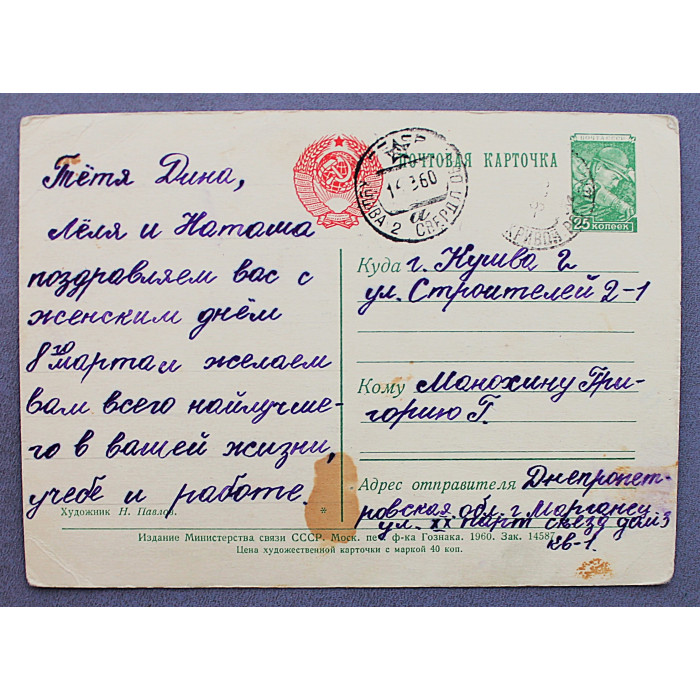 Тётя Дина,
Лёля и Наташа
поздравляем вас с
женским днём
8го марта и желаем
вам всего найлучше-
го в вашей жизни,
учебе и работе.
Художник Н. Павлов.
*
ПОЧТОВАЯ КАРТОЧКА
ПОЧТА СССР
25 КОПЕЕК
КУШВА 2 СВЕРДЛ ОБ
60
а
КРИВОЙ
Куда г. Кушва 2
ул. Строителей 2-1
Кому Манохину Гри-
горию Г.
Адрес отправителя Днепропет-
ровская обл. г Марганец
ул. ХХ парт съезд дом 3
кв-1.
Издание Министерства связи СССР. Моск. печ. ф-ка Гознака. 1960. Зак. 14587.
Цена художественной карточки с маркой 40 коп.